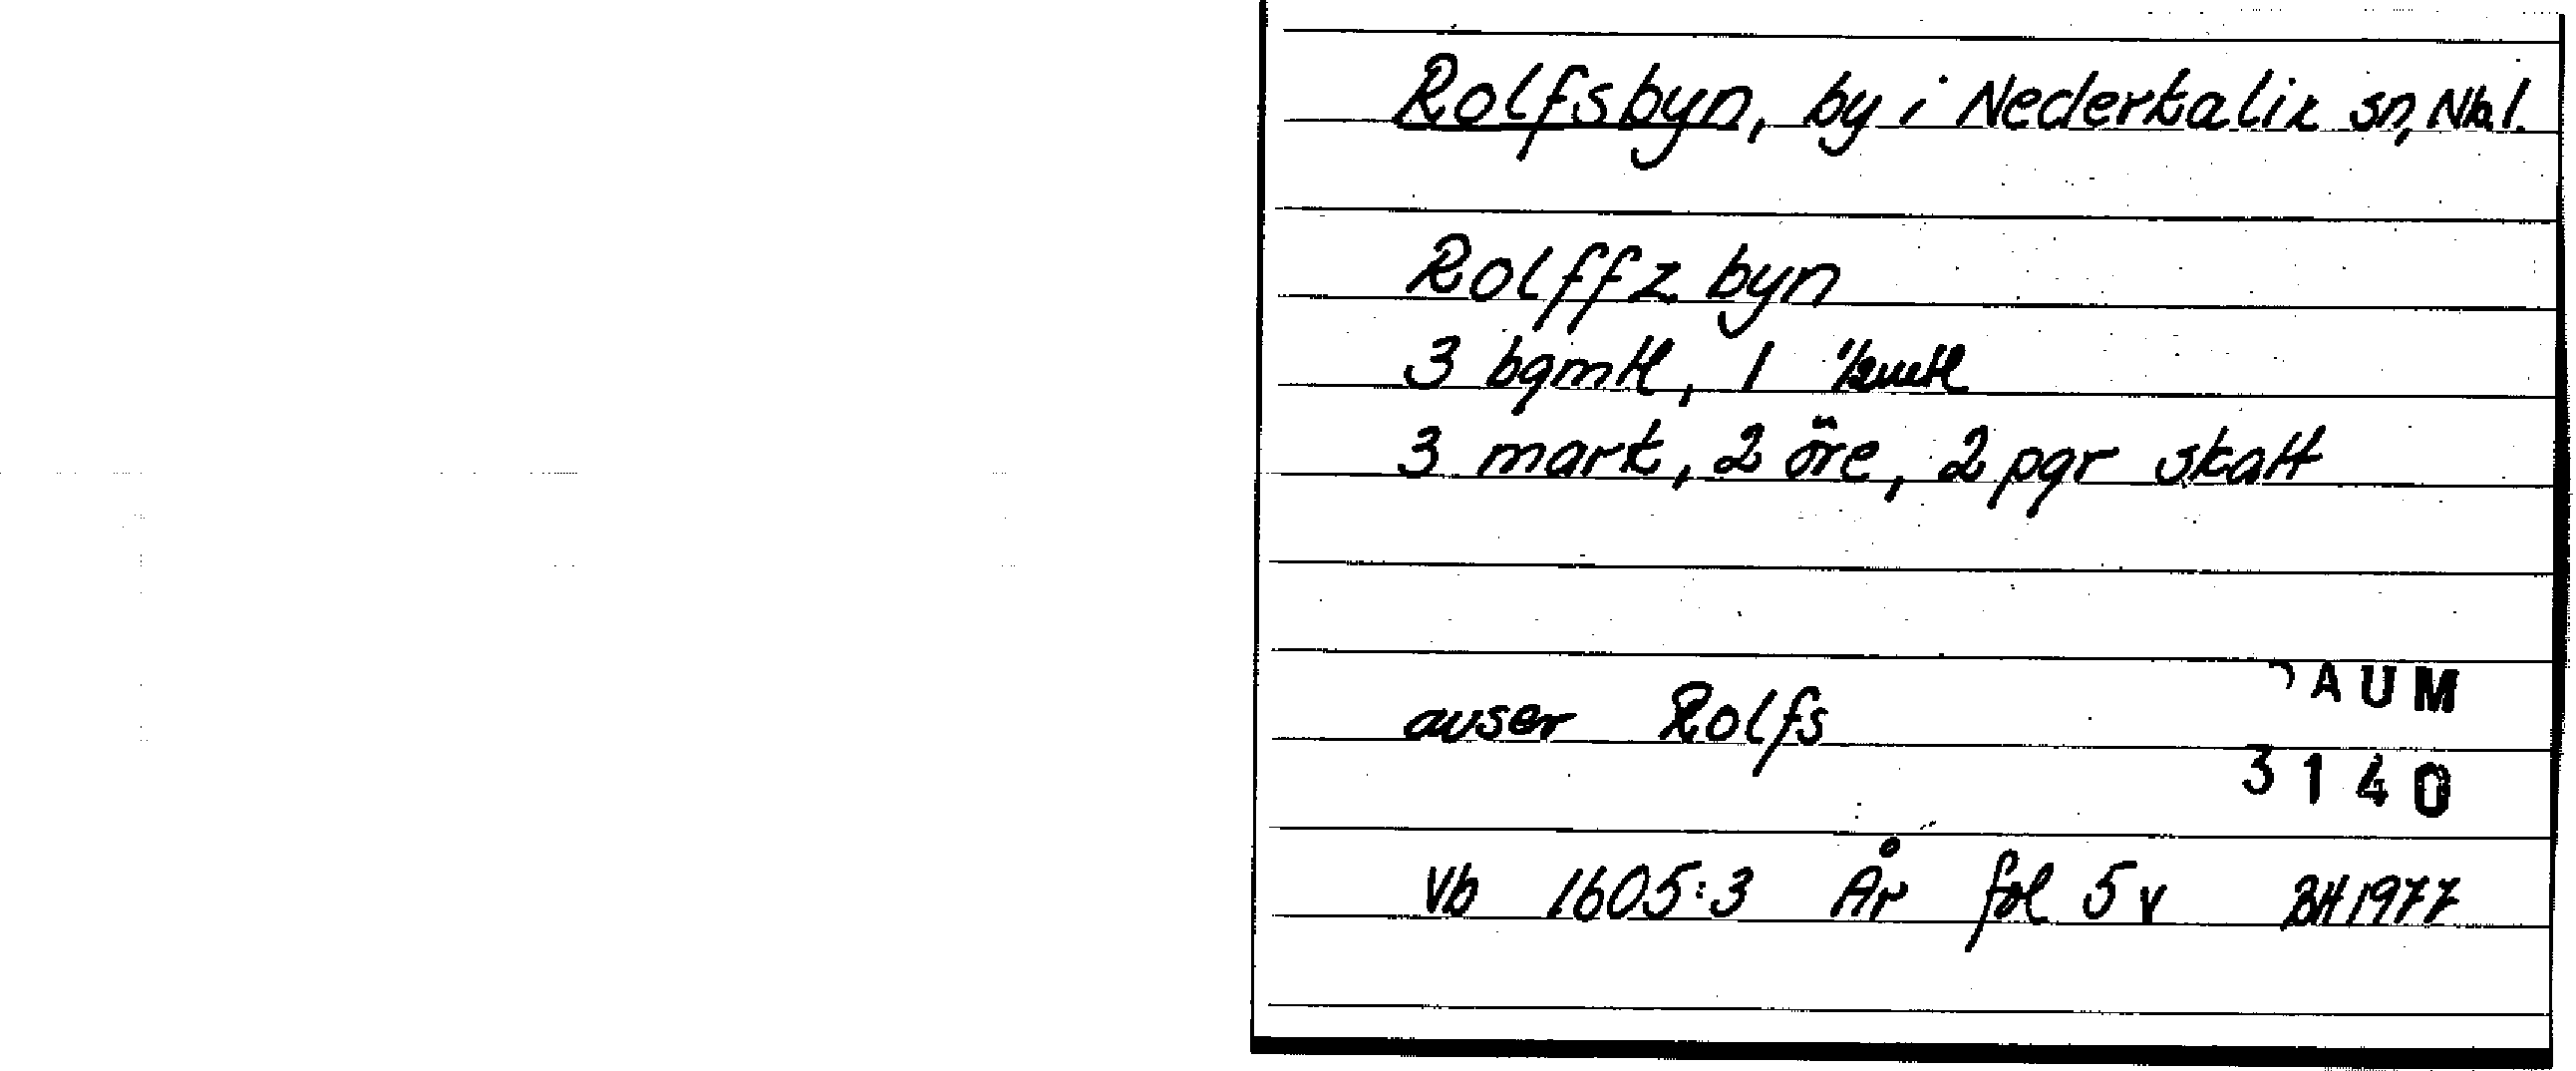 Rolfsbyn, by i Nederkalix sn, Nb.l.
Rolffz byn
3 bgmtl, 1 1/2mtl
3 mark, 2 öre, 2 pgr skatt
DAUM
avser Rolfs
3140
Vb 1605:3 År fol 5v BH1977